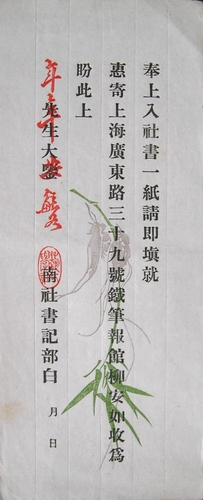 奉上入社書一紙請即塡就
惠寄上海廣東路三十九號鐵筆報館柳安如收爲
盼此上
先生大鑒
南社書記部白 月 日